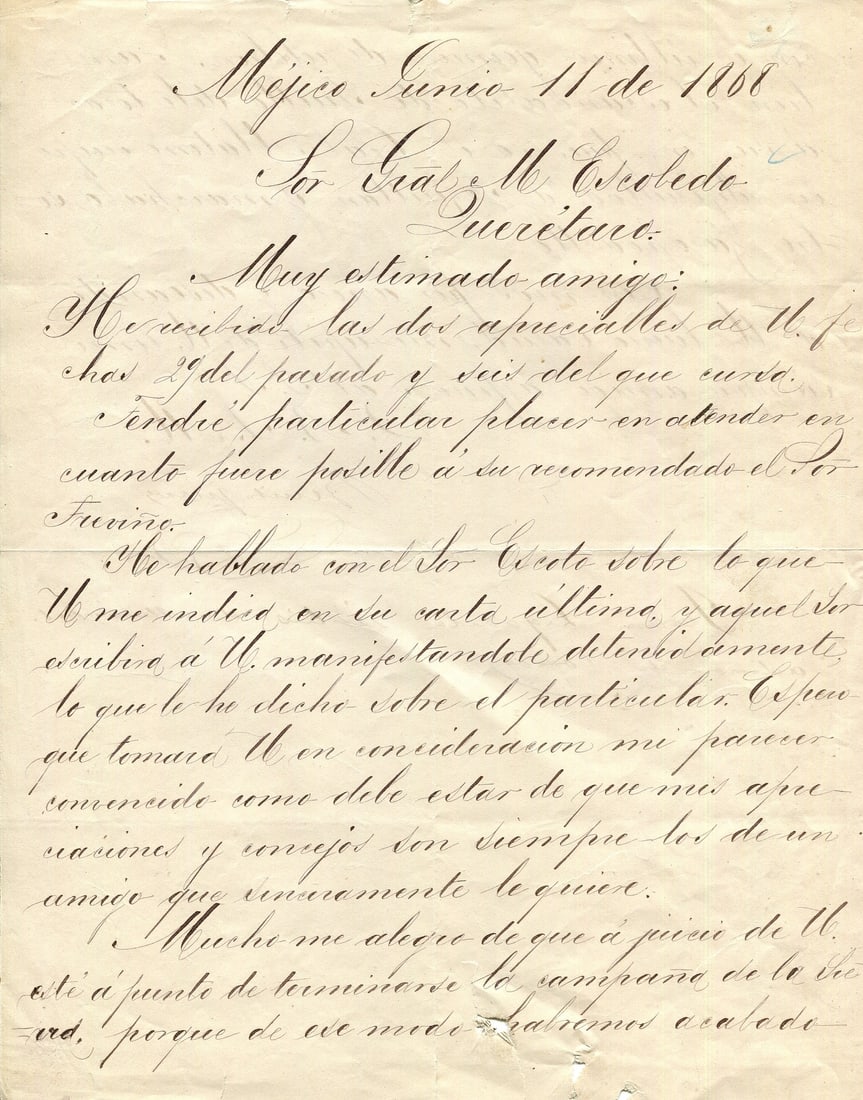 Méjico Junio 11 de 1868
Sor Gral M Escobedo
Querétaro.
Muy estimado amigo:
He recibido las dos apreciables de U. fe
chas 29 del pasado y seis del que cursa.
Tendré particular placer en atender en
cuanto fuere posible á su recomendado el Sor
Treviño.
He hablado con el Sor Escoto sobre lo que
U me indica en su carta última, y aquel Sor
escribirá á U. manifestandole detenidamente,
lo que le he dicho sobre el particular. Espero
que tomará U en concideracion mi parecer
convencido como debe estar de que mis apre-
ciaciones y concejos son siempre los de un
amigo que sinceramente le quiere.
Mucho me alegro de que á juicio de U.
esté á punto de terminarse la campaña de la Sie
=rra, porque de ese modo habremos acabado